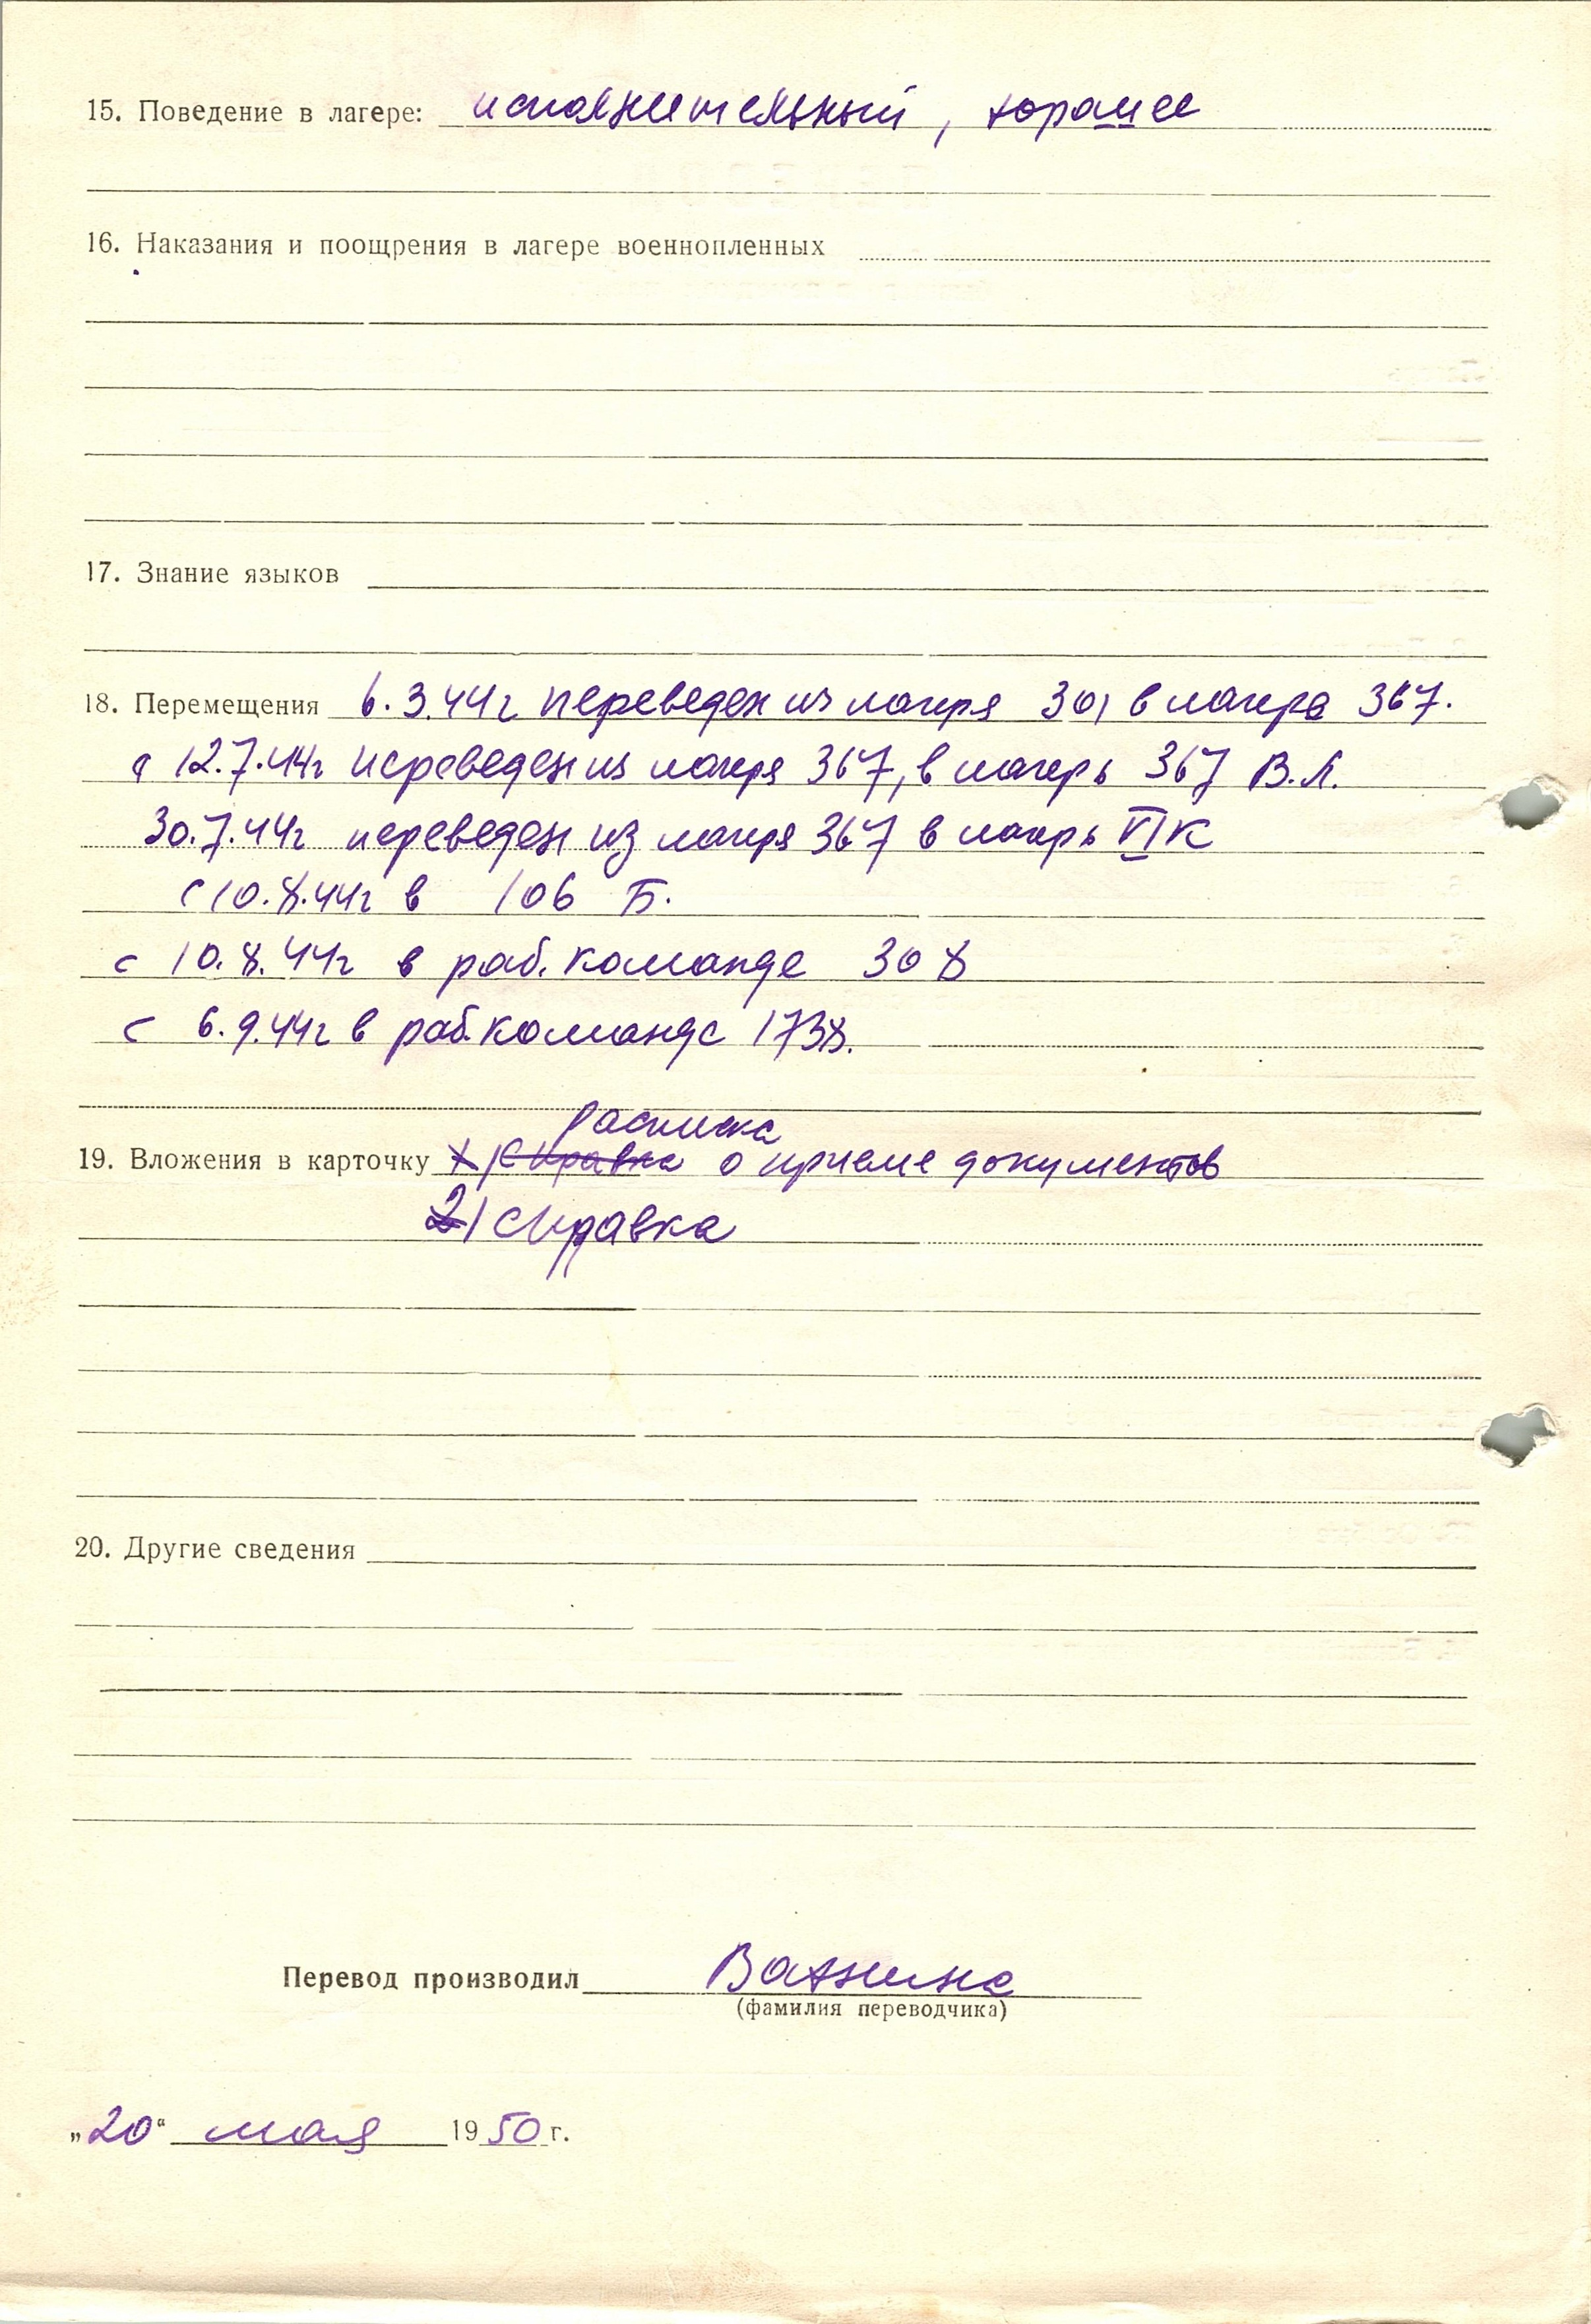 15. Поведение в лагере: исполнительный, хорошее
16. Наказания и поощрения в лагере военнопленных
17. Знание языков
18. Перемещения 6.3.44г переведен из лагеря 301 в лагерь 367.
12.7.44г переведен из лагеря 367, в лагерь 367 В.Л.
30.7.44г переведен из лагеря 367 в лагерь VI К
с 10.8.44г в 106 Б.
с 10.8.44г в раб. команде 308
с 6.9.44г в раб. команде 1738.
расписка
19. Вложения в карточку 1) справка о приеме документов
2) справка
20. Другие сведения
Перевод производил Ванина
(фамилия переводчика)
„20“ мая 1950 г.